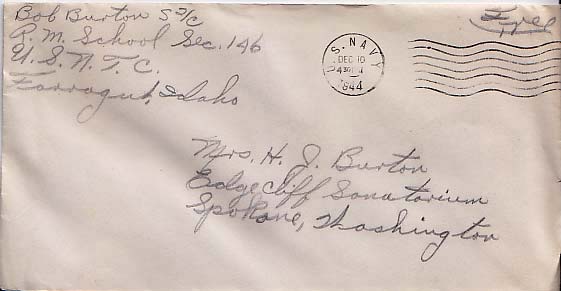 Bob Burton S 2/C
R. M. School Sec. 146
U. S. N. T. C.
Farragut, Idaho
Free
U.S. NAVY
DEC 10
1944
Mrs. H. J. Burton
Edgecliff Sanatorium
Spokane, Washington